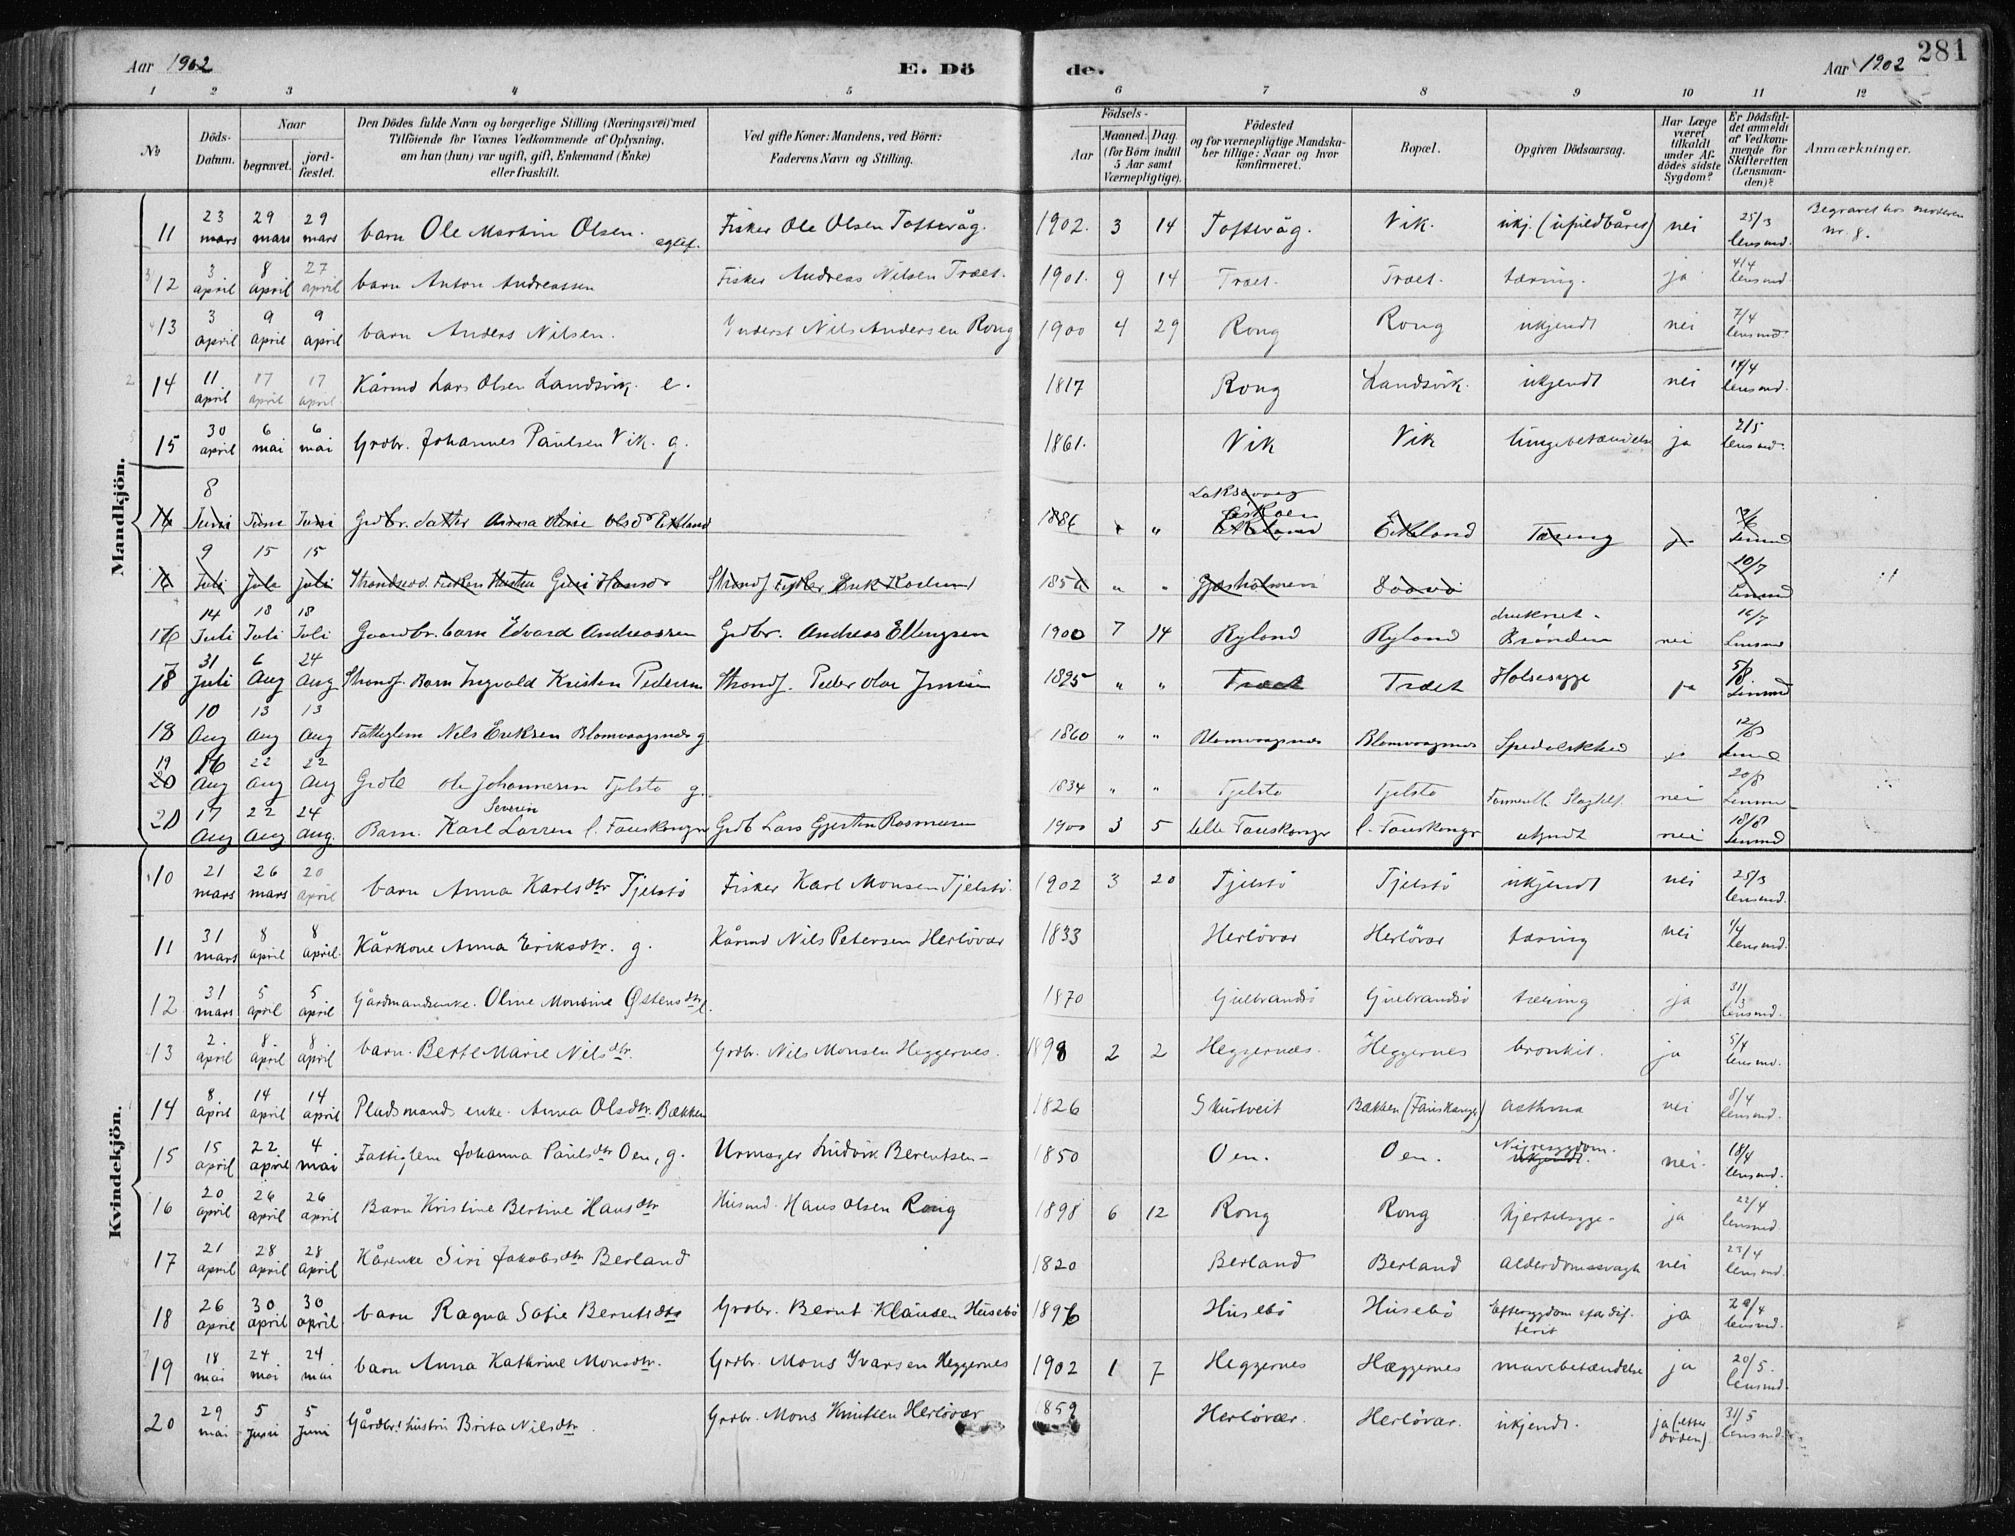 Aar 1902 E. Dö de. Aar 1902 281
1 2 3 4 5 6 7 8 9 10 11 12
No Döds-Datum. Naar begravet. jord-fæstet. Den Dödes fulde Navn og borgerlige Stilling (Næringsvei) med Tilföiende for Voxnes Vedkommende af Oplysning, om han (hun) var ugift, gift, Enkemand (Enke) eller fraskilt. Ved gifte Koner: Mandens, ved Börn: Faderens Navn og Stilling. Födsels- Aar Maaned. Dag. (for Börn indtil 5 Aar samt Værnepligtige). Födested og for værnepligtige Mandskaber tillige: Naar og hvor konfirmeret. Bopæl. Opgiven Dödsaarsag. Har Læge været tilkaldt under Afdödes sidste Sygdom? Er Dödsfaldet anmeldt af Vedkommende for Skifteretten (Lensmanden)? Anmærkninger.
Mandkjön.
11 23 mars 29 mars 29 mars barn Ole Martin Olsen. Fisker Ole Olsen Toftevåg. 1902. 3 14 Toftevåg. Vik. ukj. (ufuldbåret) nei 25/3 lensmd. Begravet hos moderen nr. 8.
12 3 april 8 april 27 april barn Anton Andreassen Fisker Andreas Nilsen Træt. 1901. 9 14 Træt. Træt. tæring. ja 4/4 lensmd.
13 3 april 9 april 9 april barn Anders Nilsen. Inderst Nils Andersen Rong 1900 4 29 Rong Rong ukjendt nei 7/4 lensmd.
14 11 april 17 april 17 april Kårmd Lars Olsen Landsvik. e. 1817 Rong Landsvik. ukjendt nei 14/4 lensmd.
15 30 april 6 mai 6 mai Grdbr. Johannes Paulsen Vik. g. 1861. Vik Vik lungebetændelse ja 2/5 lensmd.
16 8 Juni Juni Juni Grdbr. datter Anna Olsdr Eikland 1886 " " Laksevaag Eikland Tæring ja Lensmd
16 9 Juli 15 Juli 15 Juli Strands. Fiskers Hustru Guri Hansdr " " Gjæsholmen 10/7 Lensmd
16 14 Juli 18 Juli 18 Juli Gaardbr. barn Edvard Andreassen Grdbr. Andreas Ellingsen 1900 7 14 Ryland Ryland druknet - Brönden nei 16/7 Lensmd
17 31 Juli 6 Aug 24 Aug Strands. Barn Ingvald Kristen Pedersen Strands. Peder Olai Jensen 1895 " " Træet Træet Halsesyge ja 5/8. Lensmd
18 10 Aug 13 Aug 13 Aug Fattiglem Nils Eriksen Blomvaagnes g. 1860 " " Blomvaagnes Blomvaagnes Spedalskhed ja 12/8 Lensmd
19 16 Aug 22 Aug 22 Aug Grdb Ole Johannesen Tjelstö g. 1834 " " Tjelstö Tjelstö nei 20/8 Lensmd
20 17 Aug 22 Aug 24 Aug. Barn. Karl Severin Larsen l. Fauskanger Grdb Lars Gjertsen Rasmussen 1900 3 5 lille Fauskanger l. Fauskanger ukjendt nei 18/8 Lensmd
Kvindekjön.
10 21 mars 26 mars 20 april barn Anna Karlsdtr Tjelstö Fisker Karl Monsen Tjelstö. 1902 3 20 Tjelstö Tjelstö ukjendt nei 25/3 lensmd.
11 31 mars 8 april 8 april. Kårkone Anna Eriksdtr. g. Kårmd Nils Petersen Herlövær 1833 Herlövær Herlövær tæring nei 1/4 lensmd.
12 31 mars 5 april 5 april Gårdmandsenke. Oline Monsine Østensdtr 1870 Gulbrandsö Gulbrandsö tæring ja 31/3 lensmd.
13 2. april 8 april 8 april barn. Berte Marie Nilsdtr. Grdbr. Nils Monsen Heggernes. 1898 2 2 Heggernæs Heggernes bronkit. ja 5/4 lensmd.
14 8 april 14 april 14 april Pladsmands enke. Anna Olsdtr. Bækken 1826 Skurtveit Bækken (Fauskanger) asthma nei 8/4 lensmd.
15 15 april 22 april 4 mai Fattiglem Johanna Paulsdtr Oen, g. Urmager Ludvik Berentsen - 1850 Oen. Oen. Nyresygdom. ukjendt. nei. 18/4 lensmd.
16 20 april 26 april 26 april Barn Kristine Bertine Hansdtr Husmd. Hans Olsen Rong 1898 6 12 Rong Rong kjertelsyge - ja 22/4 lensmd.
17 21 april 28 april 28 april Kårenke Siri Jakobsdtr Berland 1820 Berland Berland alderdomssvagh nei 23/4 lensmd.
18 26 april 30 april 30 april barn Ragna Sofie Berntsdtr Grdbr. Bernt Klausen Husebö 1896 Husebö Husebö Eftersygdom efter difterit ja 29/4 lensmd.
19 18 mai 24 mai 24 mai barn Anna Kathrine Monsdtr. Grdbr. Mons Ivarsen Heggernes 1902 1 7 Heggernes Hæggernes mavebetændelse ja 20/5. lensmd.
20 29 mai 5 Juni 5 Juni Gårdbr. hustru Brita Nilsdtr Grdbr. Mons Knutsen Herlövær 1859 Herlövær. Herlövær. ukjendt. ja (efter döden). 31/5 lensmd.